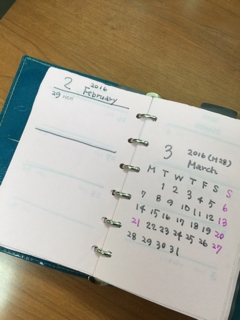 2 2016 February
29 mon
3 2016 (H28) March
M T W T F S S
1 2 3 4 5 6
7 8 9 10 11 12 13
14 15 16 17 18 19 20
21 22 23 24 25 26 27
28 29 30 31